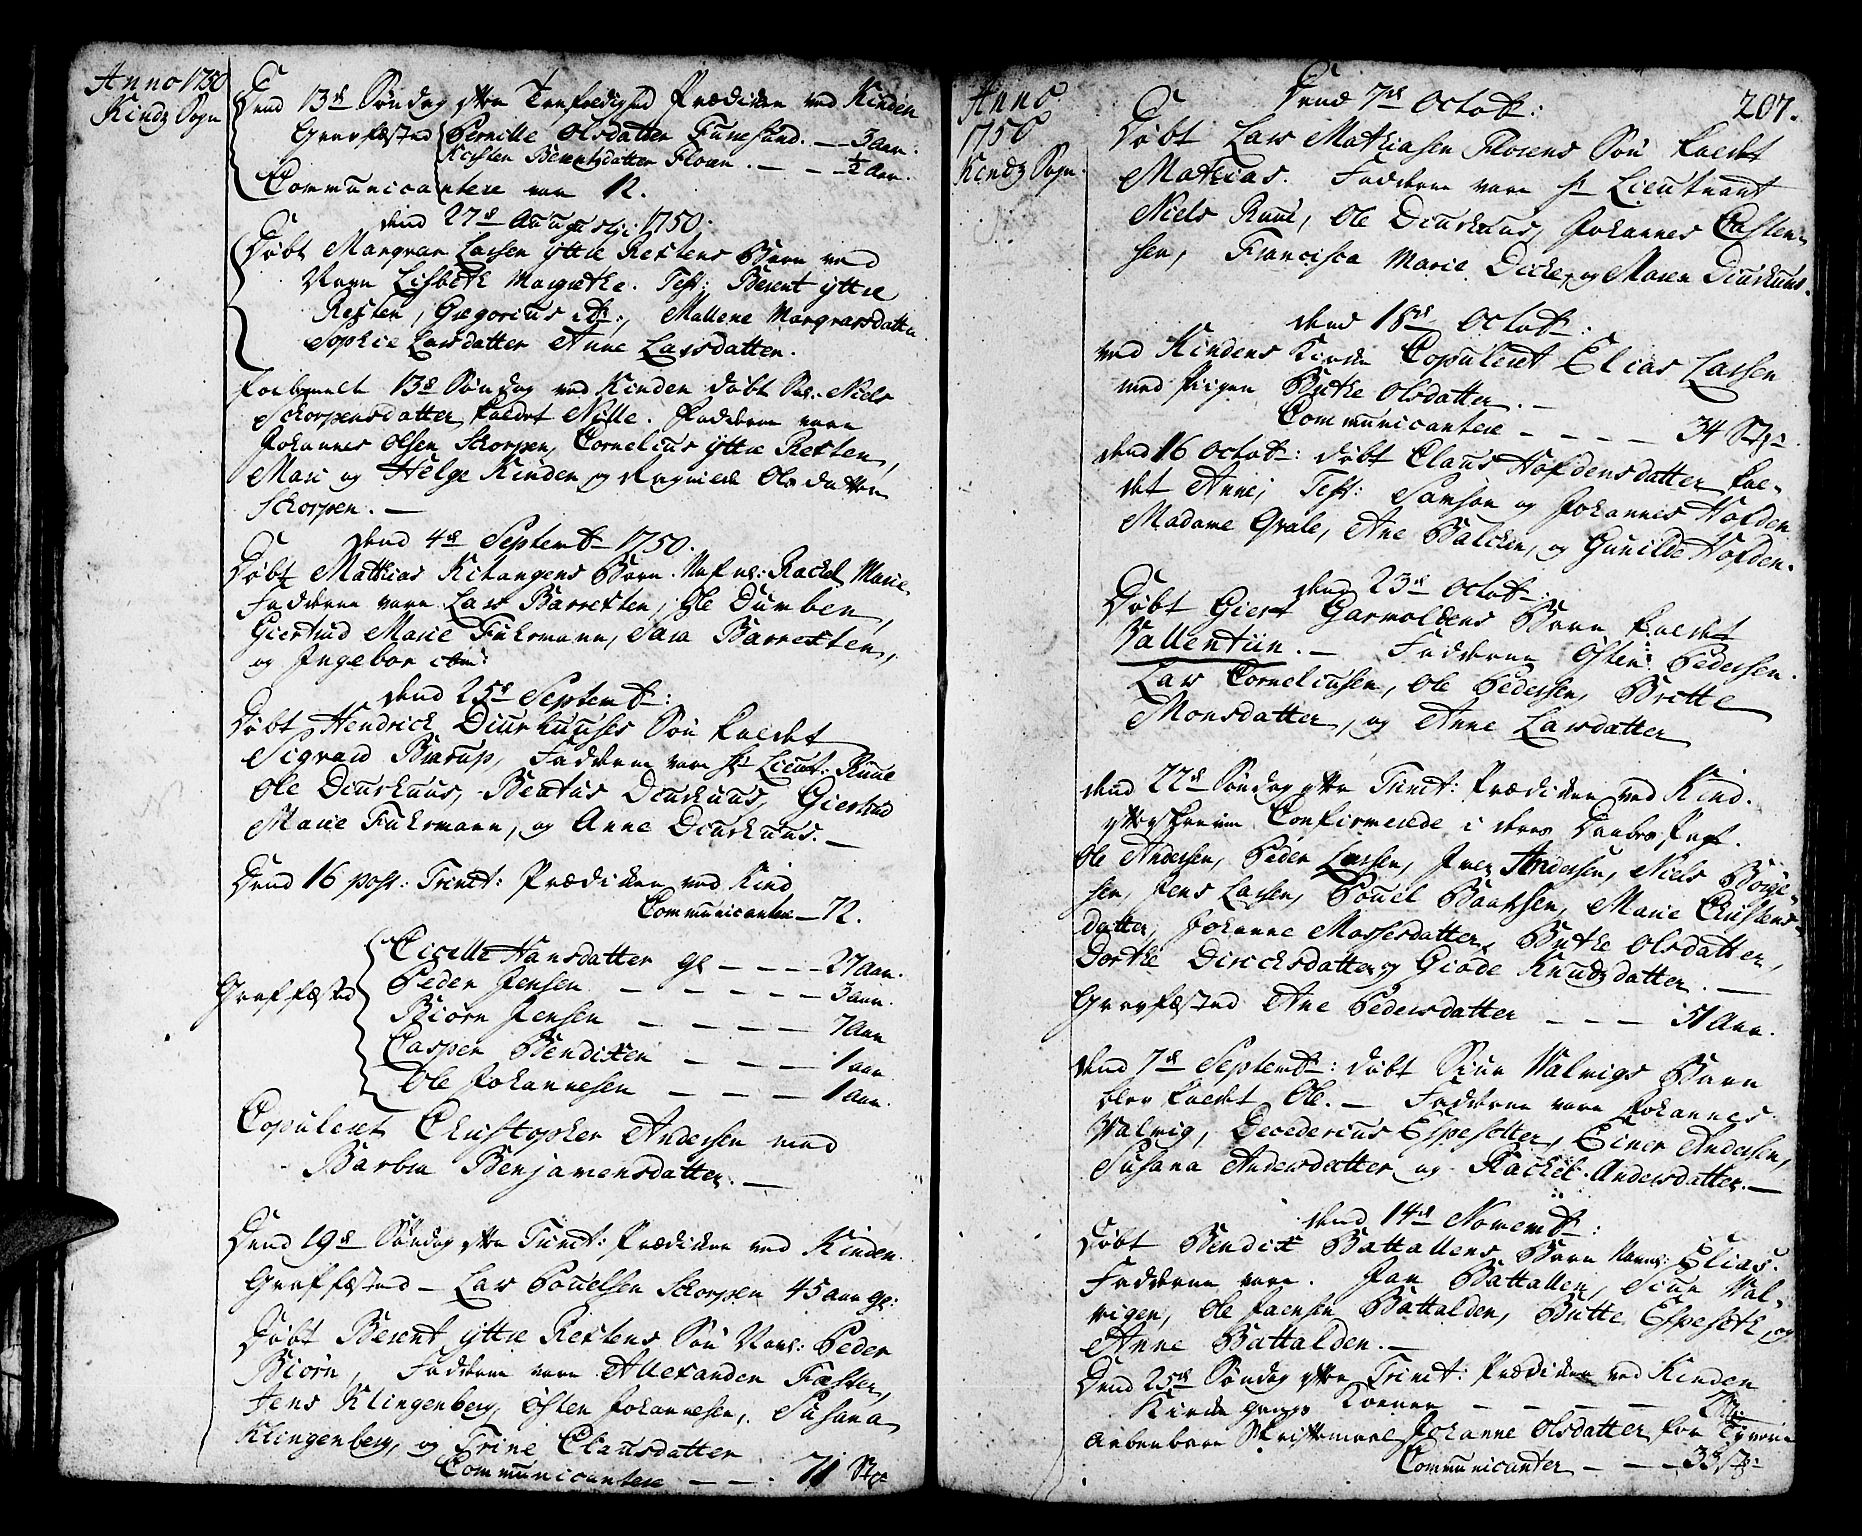 Anno 1750
Kindz Sogn
Dend 13de Søndag efter Trefoldighed Prædiken ved Kinden
Gravfæsted Pernille Olsdatter Furesund. — 3 Aar.
Kirsten Berentsdatter Floen. — — 1/2 Aar.
Communicantere vare 12.
dend 27de Augusti 1750.
Døbt Marqvar Larsen yttre Rextens Barn ved
Navn Lisbeth Margrethe. Test: Berent yttre
Rexten, Gregorius ibid:, Mallene Marqvarsdatter
Sophie Larsdatter Anne Larsdatter.
forbemelt 13de Søndag ved Kinden døbt Sal. Niels
Schorpensdatter kaldet Nille. Fadderne vare
Johannes Olsen Schorpen, Cornelius yttre Rexten,
Mari og Helge Kinden og Olsdatter
Schorpen. —
dend 4de Septembr 1750.
Døbt Mathias Kitangens Barn Nafnl: Rachel Marie
Fadderne vare Lars Barrexten, Ole Dumben,
Giertrud Marie Fuhrmann, Sara Barrexten,
og Ingebor ibid:
dend 25de Septembr:
Døbt Hendrick Diurhuuses Søn kaldet
Sigvard Barup, Fadderne vare Hr Lieut: Ruue
Ole Diurhuus, Beatus Diurhuus, Giertrud
Marie Fuhrmann, og Anne Diurhuus. —
Dend 16 post: Trinit: Prædiken ved Kind
Communicantere — 72.
Graffæsted
Cicelle Hansdatter gl — — — 27 Aar.
Peder Jensen — — — — — 3 aar.
Biørn Jensen — — — — 7 Aar
Casper Bendixen — — — 1 aar
Ole Johannesen — — — — 1 Aar.
Copuleret Christopher Andersen med
Barbra Benjamensdatter. —
Dend 19de Søndag efter Trinit: Prædiken ved Kinden.
Graffæsted — Lars Pouelsen Schorpen 45 aar gl:
Døbt Berent yttre Rextens Søn Navnl: Peder
Biørn, Fadderne vare Allexander Fæster,
Jens Klingenberg, Østen Johannesen, Susana
Klingenberg, og Trine Clausdatter
Communicantere — — : 71 Stk
Anno
1750
Kindz Sogn.
207.
Dend 7de Octobr:
Døbt Lars Mathiasen Florens Søn kaldet
Mathias. Fadderne vare Hr Lieutnant
Niels Ruue, Ole Diurhuus, Johannes Casten-
sen, Francisca Marie Dicke, og Maren Diurhuus.
dend 18de Octobr:
ved Kindens Kirke Copuleret Elias Larsen
med Pigen Birthe Olsdatter. —
Communicantere — — — — 34 Stk:
dend 16 Octobr: døbt Claus Hofdensdatter kal-
det Anne; Test: Samson og Johannes Hofden
Madame Qvale, Ane Balchen, og Gunilde Hofden.
dend 23de Octobr:
Døbt Giert Garvoldens Barn kaldet
Vallentiin. — Fadderne Østen Pedersen.
Lars Corneliusen, Ole Pedersen, Britte
Monsdatter, og Anne Larsdatter
dend 22de Søndag efter Trinit: Prædiken ved Kind.
Confirmerede i deres Daabs Pagt.
Ole Andersen, Peder Larsen, Iver Andersen, Niels Børge-
sen, Jens Larsen, Pouel Bentsen, Marie Christens-
datter, Johanne Massesdatter, Birthe Olsdatter,
Dorthe Dircksdatter og Giøde Knudsdatter. —
Gravfæsted Ane Pedersdatter — — — 51 Aar.
dend 7de Septembr: døbt Siur Valvigs Barn
blev kaldt Ole. — Fadderne vare Johannes
Valvig, Decederius Espesetter, Einer Andersen,
Susana Andersdatter og Rachel Andersdatter. —
dend 14de Novembr:
Døbt Bendix Battallens Barn Navnl: Elias.
Fadderne vare. Jan Battallen, Siur Val-
vigen, Ole Jaensen Battalden, Britte Espeseth, og
Anne Battalden. —
Dend 25de Søndag efter Trinit: Prædiken ved Kinden
Kirke gangs Koener — — — —
Skriftemaal Johanne Olsdatter for Tyverie
Communicanter — — — 33 Stk